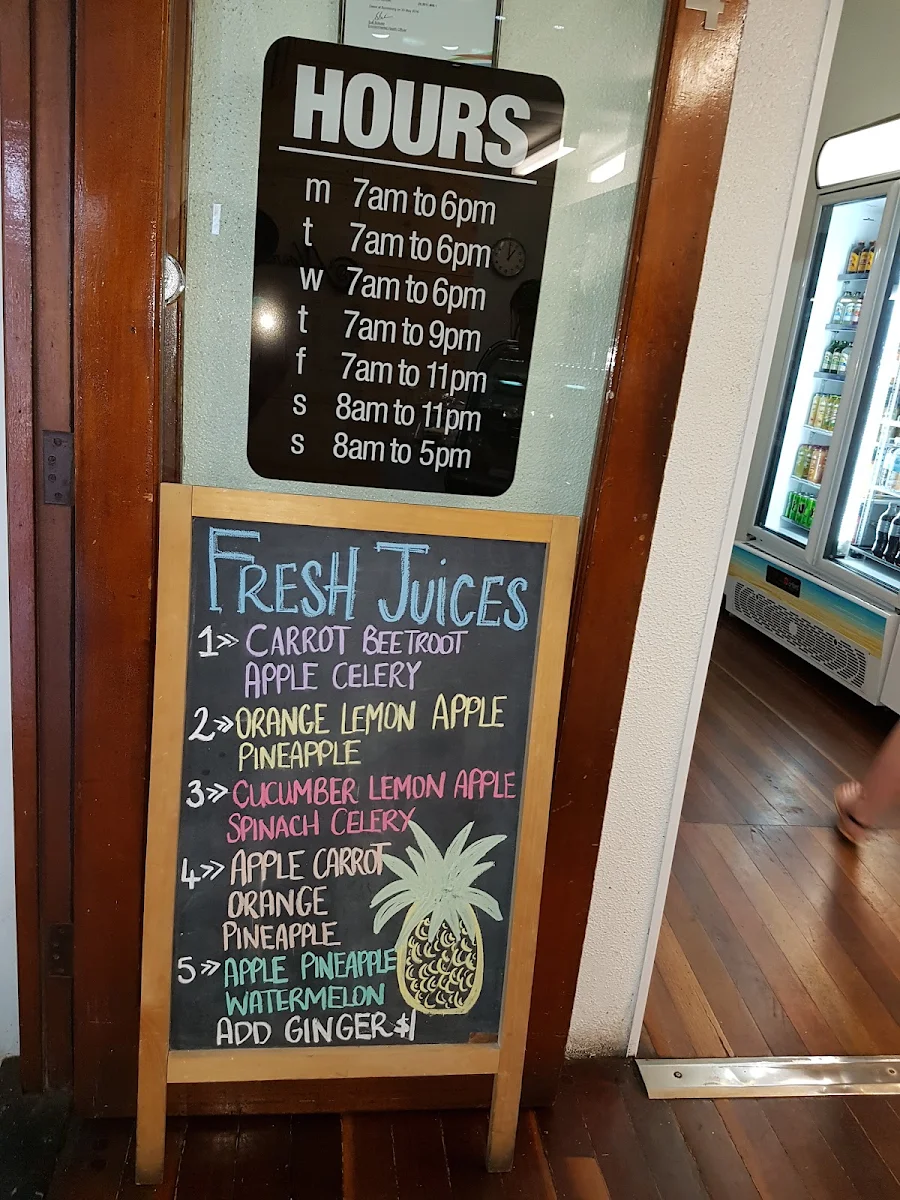 HOURS
m 7am to 6pm
t 7am to 6pm
w 7am to 6pm
t 7am to 9pm
f 7am to 11pm
s 8am to 11pm
s 8am to 5pm
FRESH JUICES
1>> CARROT BEETROOT
APPLE CELERY
2>> ORANGE LEMON APPLE
PINEAPPLE
3>> CUCUMBER LEMON APPLE
SPINACH CELERY
4>> APPLE CARROT
ORANGE
PINEAPPLE
5>> APPLE PINEAPPLE
WATERMELON
ADD GINGER $1